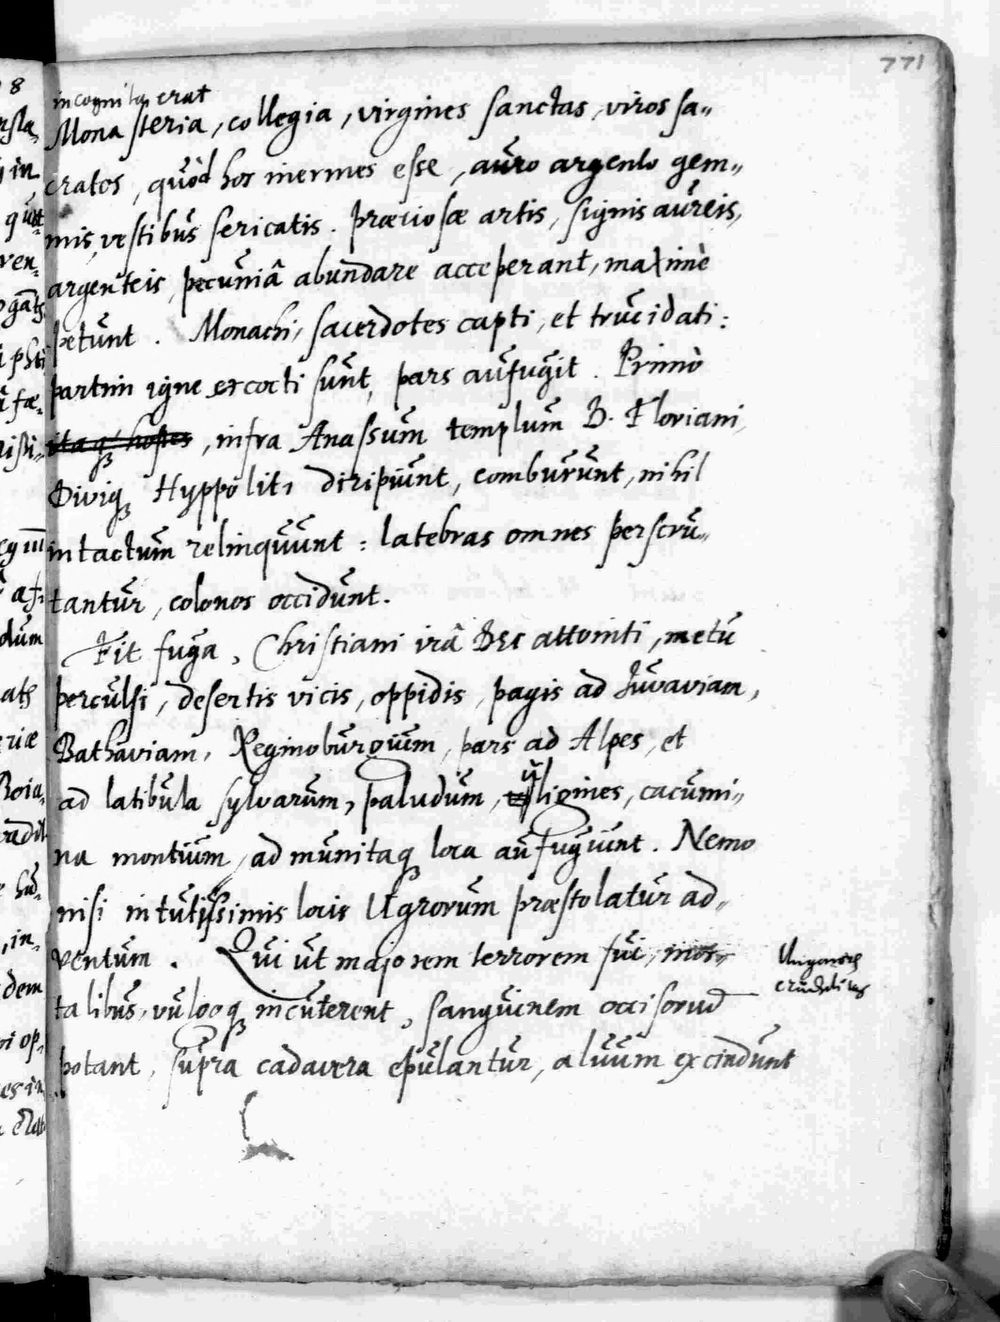 771
incognita erat
Monasteria, collegia, virgines sanctas, viros sa„
cratos, quòd hos inermes esse, auro argento gem„
mis, vestibus sericatis. præciosæ artis, signis aureis,
argenteis, pecuniâ abundare acceperant, maximè
petunt. Monachi, sacerdotes capti, et trucidati:
partim igne excocti sunt, pars aufugit. Primò
itaq hostes, infra Anassum templum D. Floriani
Diviq Hyppoliti diripiunt, comburunt, nihil
intactum relinquunt: latebras omnes perscru„
tantur, colonos occidunt.
Fit fuga, Christiani irâ DEI attoniti, metu
perculsi, desertis vicis, oppidis, pagis ad Juvaviam,
Bathaviam, Reginoburgium, pars ad Alpes, et
ad latibula sylvarum, paludum, uligines, cacumi„
na montium, ad munitaq loca aufugiunt. Nemo
nisi in tutissimis locis Ugrorum præstolatur ad„
ventum. Qui ut majorem terrorem sui, mor„
talibus, vulgoq incuterent, sanguinem occisorum
potant, supra cadavera epulantur, alvum excindunt
Ungarorum
crudelitas